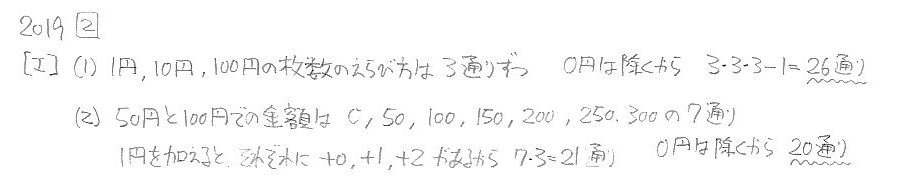 2019 2
[I] (1) 1円, 10円, 100円の枚数のえらび方は 3通りずつ 0円は除くから 3・3・3-1=26通り
(2) 50円と100円での金額は 0, 50, 100, 150, 200, 250, 300 の 7通り
1円を加えると, それぞれに +0, +1, +2 があるから 7・3=21通り 0円は除くから 20通り